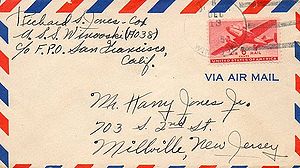 Richard S. Jones-Cox
U.S.S. Winooski (AO38)
c/o F.P.O. San Francisco,
Calif.
DEC
6¢ AIR MAIL
UNITED STATES OF AMERICA
VIA AIR MAIL
Mr. Harry Jones Jr.
703 S. 2nd St.
Millville, New Jersey